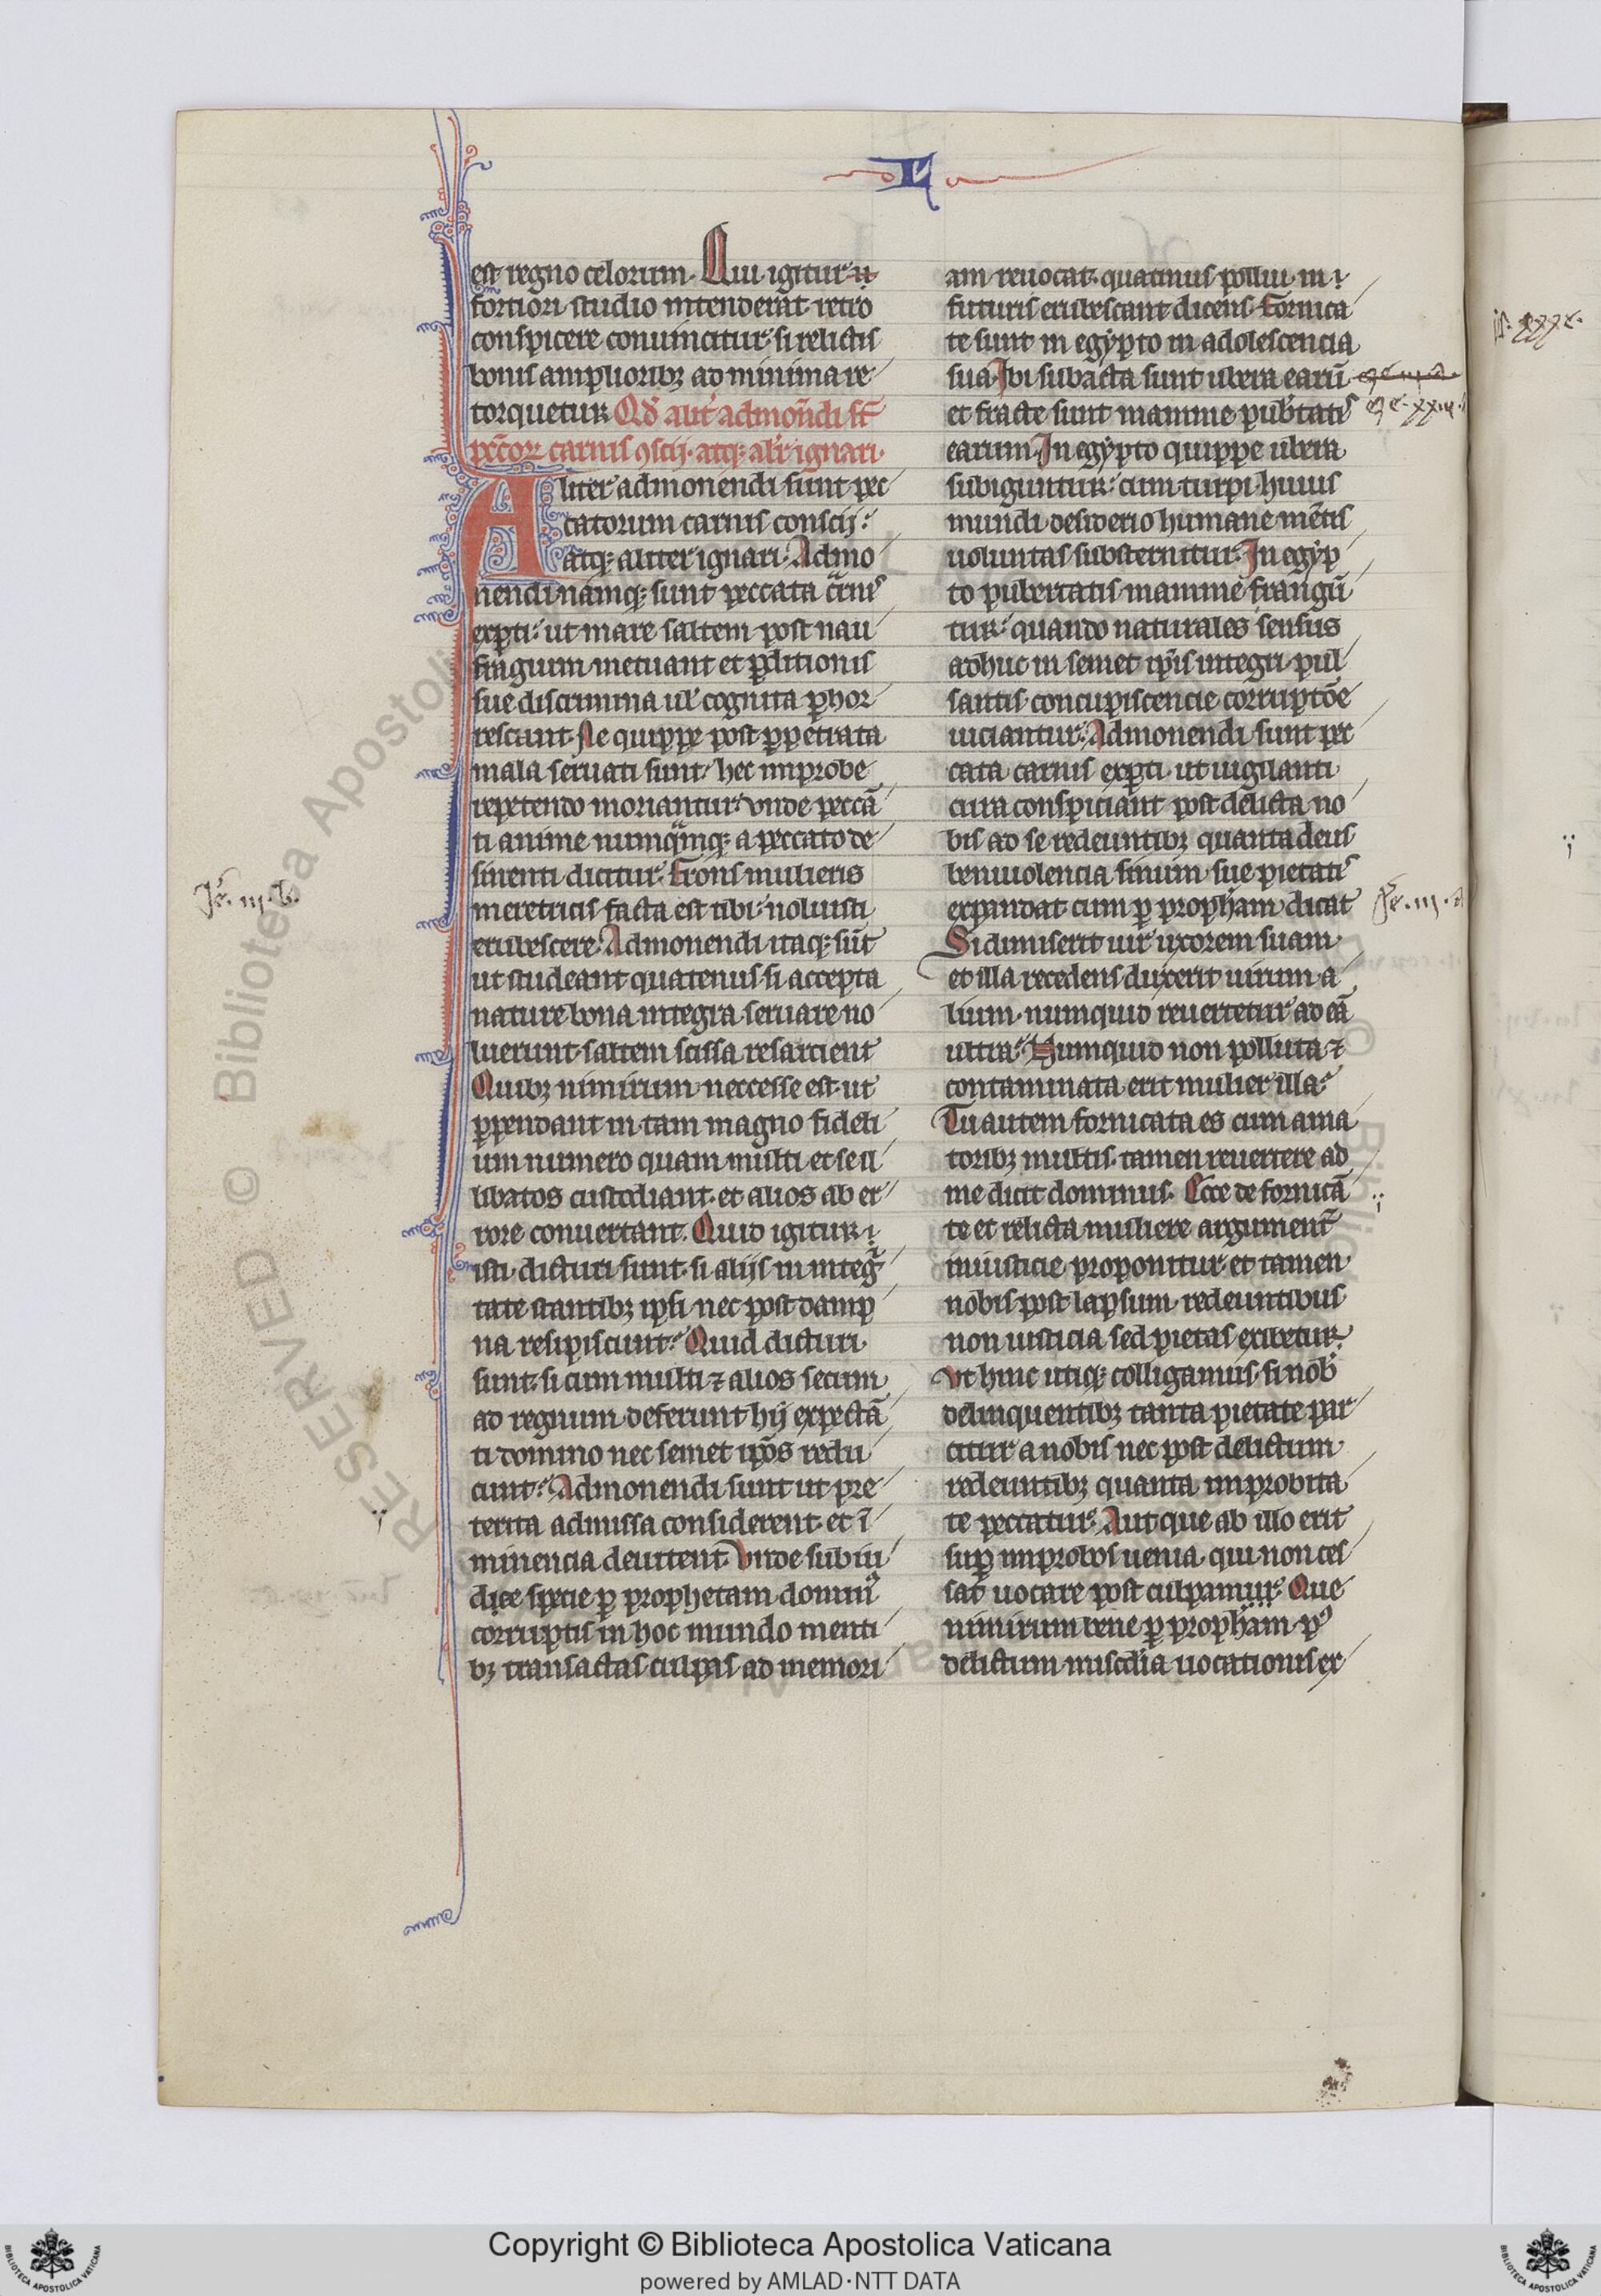 est regno celorum. Qui igitur
fortiori studio intenderat. retro
conspicere conuincitur. si relictis
bonis amplioribꝫ ad minima re
torquetur. Qd' aut' admonēdi sт̄
pc̄cor̄ carnis ꝯscij. atqꝫ alit' ignari.
Aliter admonendi sunt pec
catorum carnis conscij:
atqꝫ aliter ignari. Admo
nendi namqꝫ sunt peccata carnis
exꝑti: ut mare saltem post nau
fragium metuant et ꝑditionis
sue discrimina ul' cognita ꝑhor
rescant. Ne quippe post ꝑpetrata
mala seruati sunt. hec improbe
repetendo moriantur. vnde peccā
ti anime numqᵃmqꝫ a peccato de
sinenti dicitur. Frons mulieris
meretricis facta est tibi: noluisti
erubescere. Admonendi itaqꝫ sūt
ut studeant quatenus si accepta
nature bona integra seruare no
luerunt. saltem scissa resarcient
Quibꝫ nimirum neccesse est. ut
ꝑpendant in tam magno fideli
um numero quam multi et se il
libatos custodiant. et alios ab er
rore conuertant. Quid igitur
isti dicturi sunt. si alijs in integͥ
tate stantibꝫ ipsi nec post damp
na resipiscunt? Quid dicturi
sunt. si cum multi ⁊ alios secum
ad regnum deferunt hij expectā
ti domino nec semet ip̄os redu
cunt? Admonendi sunt ut pre
terita admissa considerent. et ī
minencia deuitent. Vnde sub iu
dee specie ꝑ prophetam dominꝰ
corruptis in hoc mundo menti
bꝫ transactas culpas ad memori
am reuocat. quatinus pollui in
futuris erubescant dicens. Fornica
te sunt in egypto in adolescencia
sua. Ibi subacta sunt ubera earū
et fracte sunt mamme pub'tatis
earum. In egypto quippe ubera
subiguntur: cum turpi huius
mundi desiderio humane mētis
uoluntas substernitur. In egyp
to pubertatis mamme frangū
tur: quando naturales sensus
adhuc in semet ip̄is integri. pul
santis concupiscencie corruptōe
uiciantur. Admonendi sunt pec
cata carnis exꝑti. ut uigilanti
cura conspiciant post delicta no
bis ad se redeuntibꝫ quanta deus
beniuolencia sinum sue pietatis
expandat cum ꝑ proph'am dicat
Si dimiserit uir uxorem suam
et illa recedens duxerit uirum a
lium. numquid reuertetur ad eā
ultra? Numquid non polluta ⁊
contaminata erit mulier illa?
Tu autem fornicata es cum ama
toribꝫ multis. tamen reuertere ad
me dicit dominus. Ecce de fornicā
te et relicta muliere argument̄
iniusticie proponitur. et tamen
nobis post lapsum redeuntibus
non iusticia sed pietas exibetur.
Vt hinc utiqꝫ colligamus. si nob'
delinquentibꝫ tanta pietate par
citur a nobis nec post delictum
redeuntibꝫ quanta improbita
te peccatur. Aut que ab illo erit
suꝑ improbos uenia. qui non ces
sat uocare post culpam. Que
nimirum bene ꝑ proph'am. pꝰ
delictum misc'dia uocationis ex
Je. iij. b.
Je. iij. a